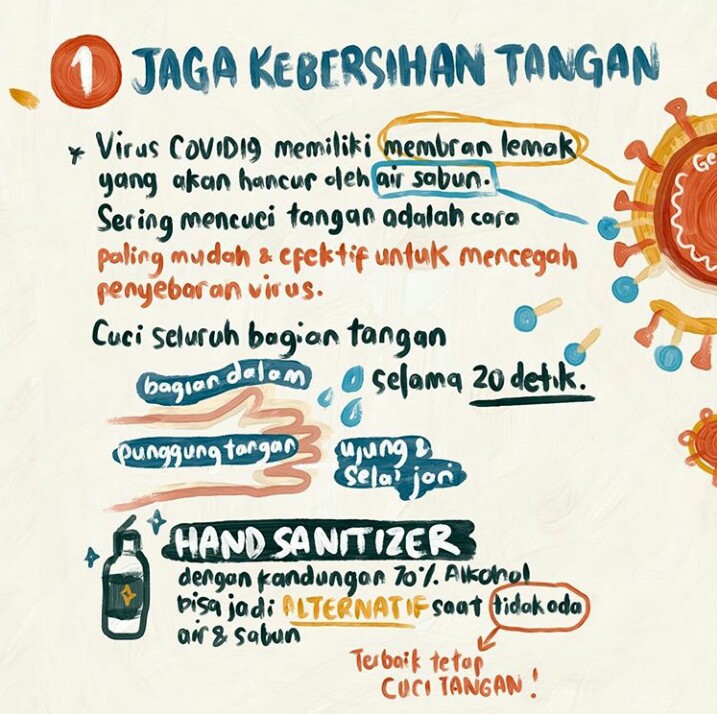 1 JAGA KEBERSIHAN TANGAN
* Virus COVID19 memiliki membran lemak
yang akan hancur oleh air sabun.
Sering mencuci tangan adalah cara
paling mudah & efektif untuk mencegah
penyebaran virus.
Cuci seluruh bagian tangan
selama 20 detik.
bagian dalam
punggung tangan
ujung &
selai jari
HAND SANITIZER
dengan kandungan 70% Alkohol
bisa jadi ALTERNATIF saat tidak ada
air & sabun
Terbaik tetap
CUCI TANGAN!
Ge